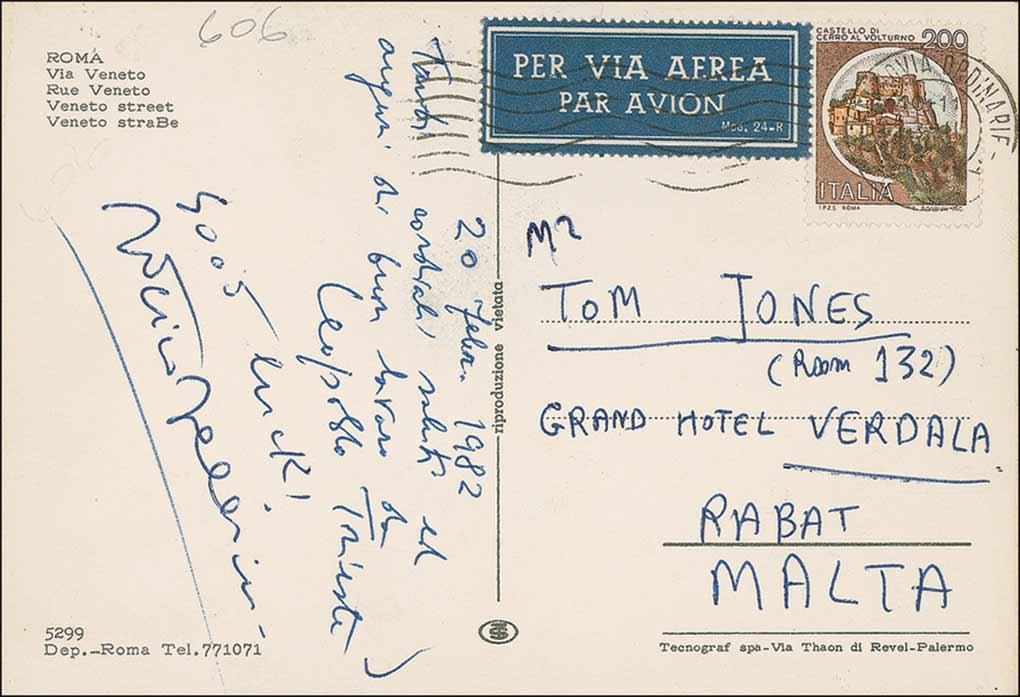 606
ROMA
Via Veneto
Rue Veneto
Veneto street
Veneto straBe
PER VIA AEREA
PAR AVION
Mod. 24-R
CASTELLO DI
CERRO AL VOLTURNO
200
ITALIA
I.P.Z.S. ROMA
ORDINARIE
20 febr. 1982
Tanti cordiali saluti ed
auguri di buon lavoro da
Leopoldo Trieste
Good luck!
riproduzione vietata
Mr
TOM JONES
(Room 132)
GRAND HOTEL VERDALA
RABAT
MALTA
5299
Dep.-Roma Tel.771071
Tecnograf spa-Via Thaon di Revel-Palermo